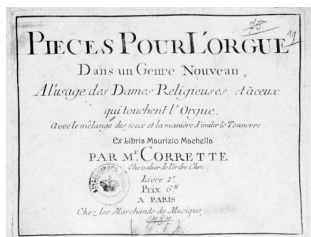 PIECES POUR L'ORGUE
Dans un Genre Nouveau,
A l'usage des Dames Religieuses et à ceux
qui touchent l'Orgue.
Avec le mélange des Jeux et la maniere d'imiter le Tonnerre
Ex Libris Maurizio Machella
PAR Mr. CORRETTE
Chevalier de l'ordre
Livre 1er
Prix 6tt
A PARIS
Chez les Marchands de Musique